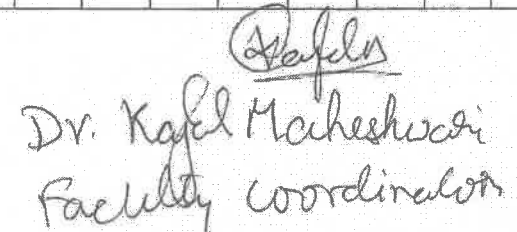 Dr. Kajal Maheshwari
Faculty coordinator